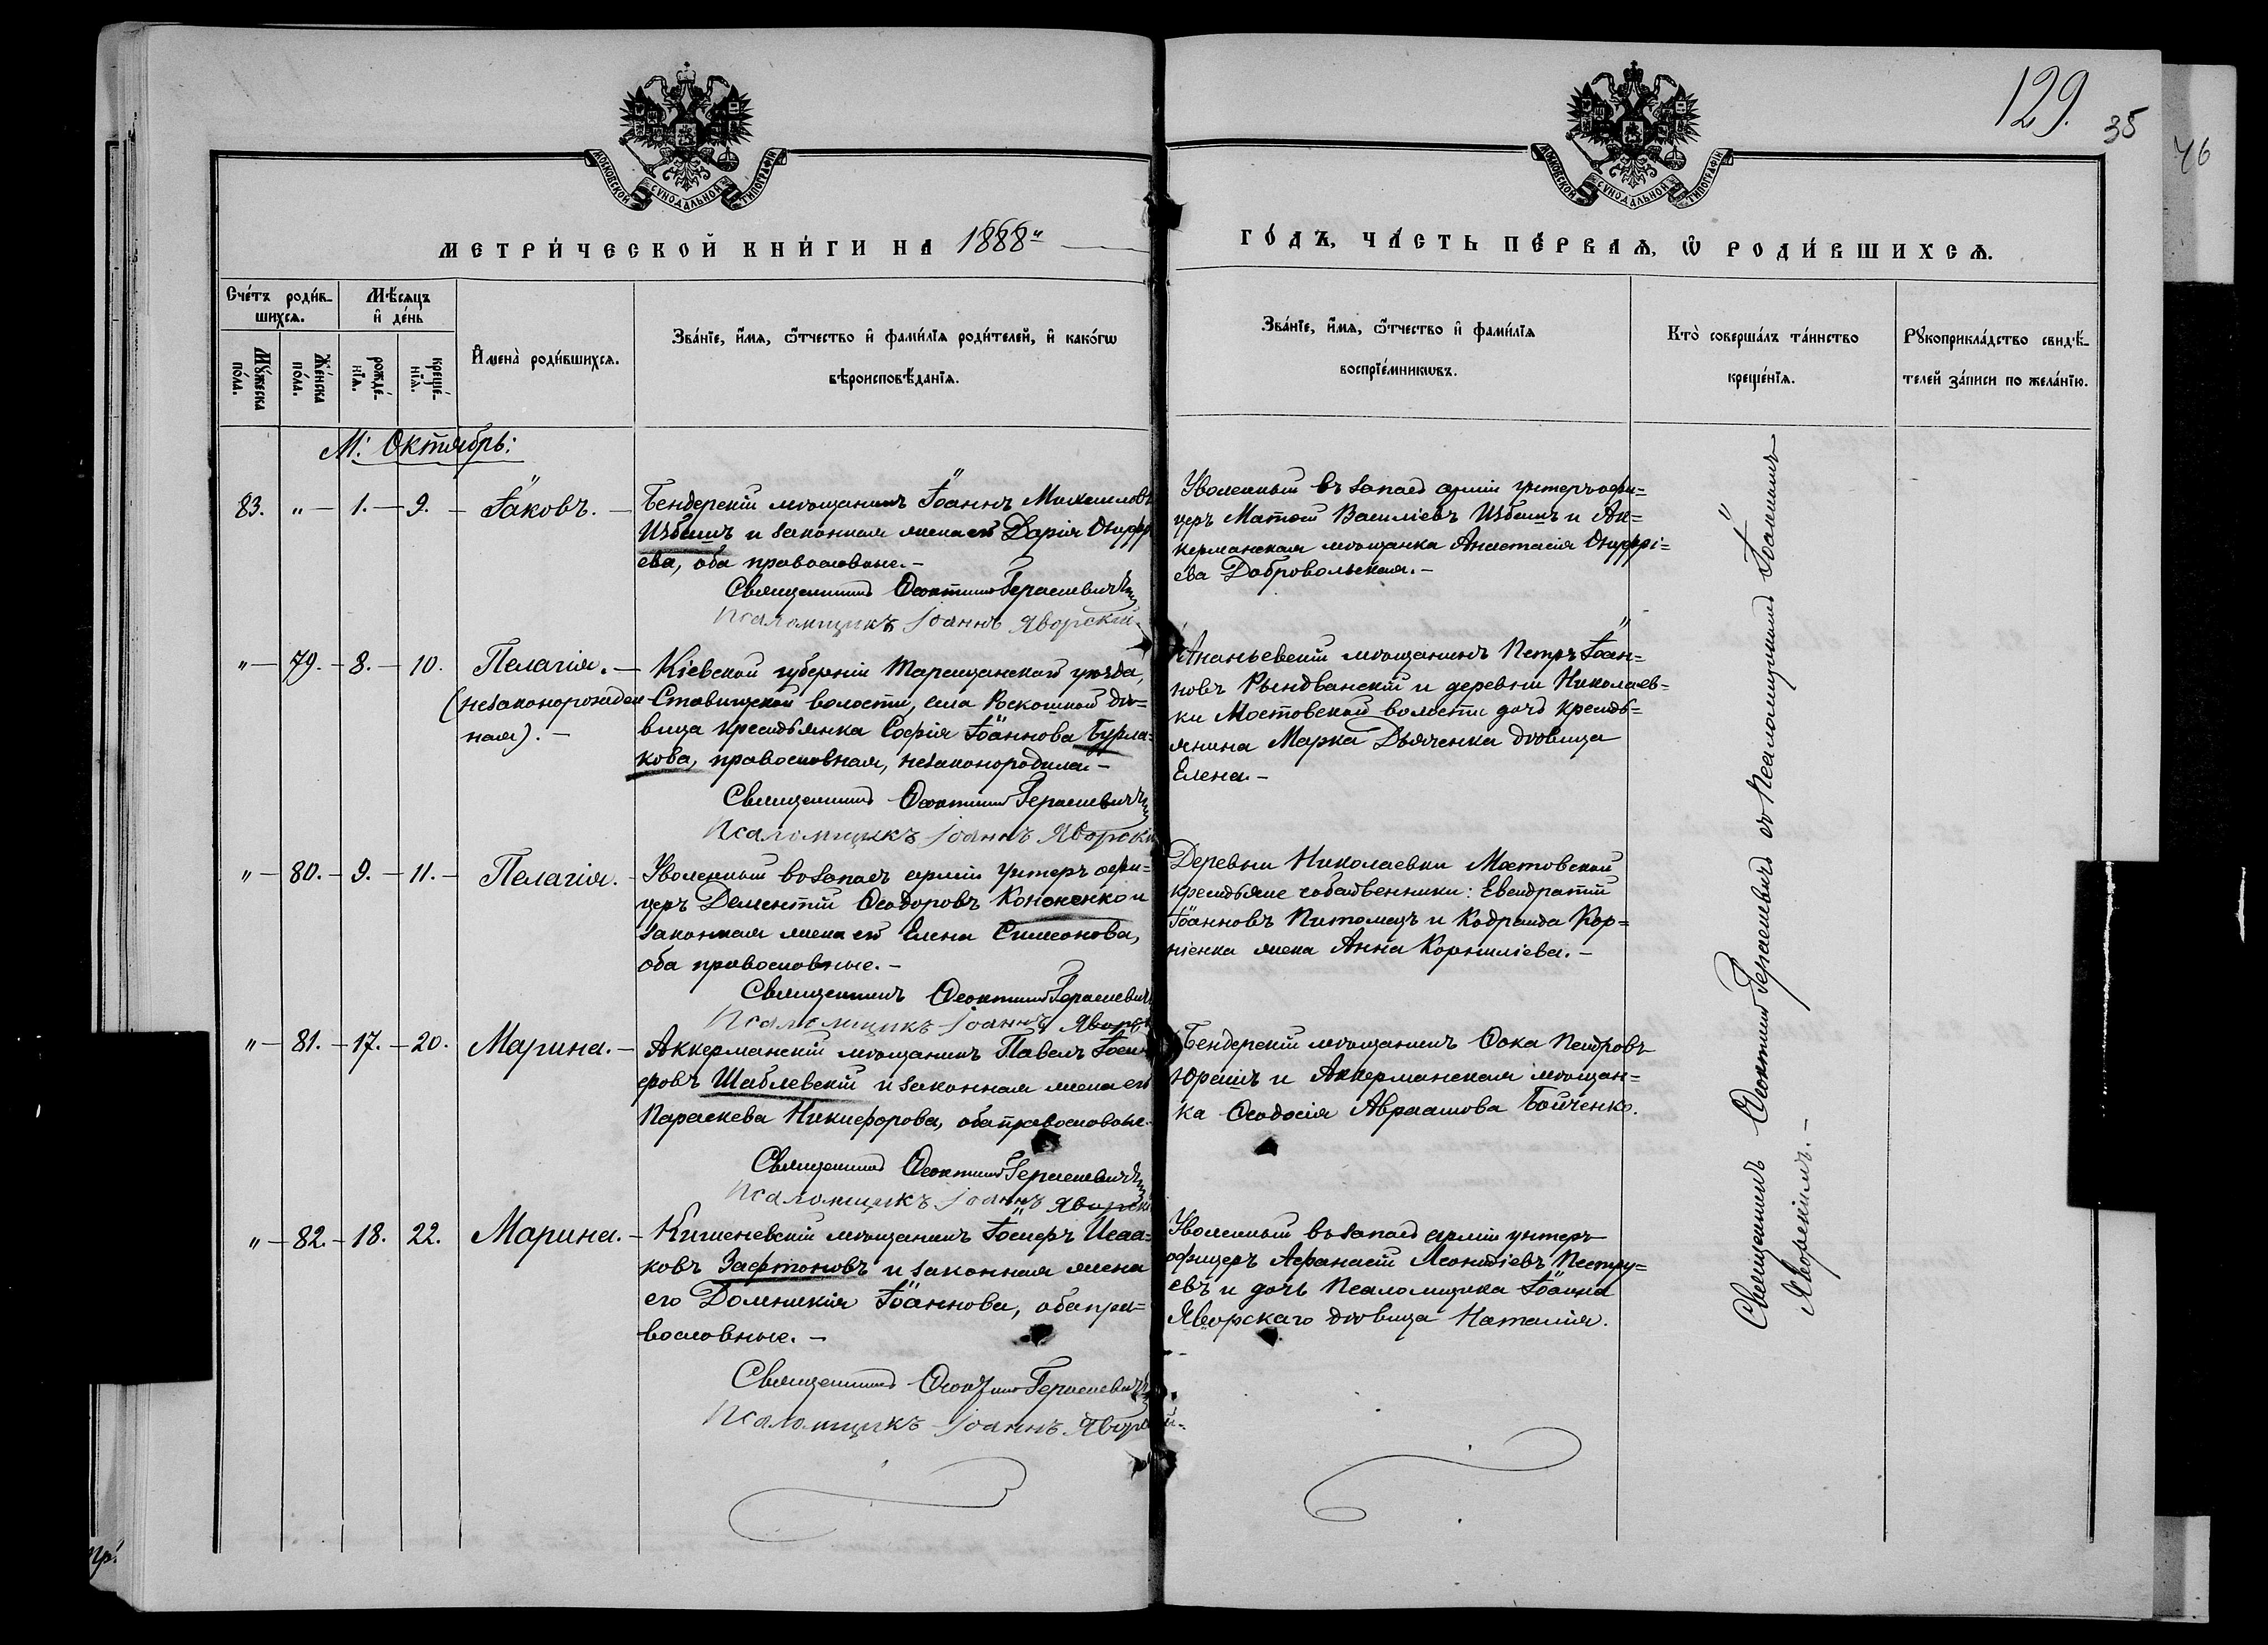 129.
35
46
МОСКОВСКОЙ СѴНОДАЛЬНОЙ ТИПОГРАФІИ
МОСКОВСКОЙ СѴНОДАЛЬНОЙ ТИПОГРАФІИ
МЕТРИ́ЧЕСКОЙ КНИ́ГИ НА 1888"
ГО́ДЪ, ЧА́СТЬ ПЕ́РВАѦ, Ѡ҆ РОДИ́ВШИХСѦ.
Сче́тъ роди́в-
шихсѧ.
Мꙋ́жеска
по́ла.
Же́нска
по́ла.
Мѣ́сѧцъ
и҆ де́нь
рожде́-
нїѧ.
креще́-
нїѧ.
И҆мена̀ роди́вшихсѧ.
Зва́нїе, и҆́мѧ, ѻ҆́тчество и҆ фами́лїѧ роди́телей, и҆ како́гѡ
вѣроисповѣ́данїѧ.
Зва́нїе, и҆́мѧ, ѻ҆́тчество и҆ фами́лїѧ
воспрїе́мникѡвъ.
Кто̀ соверша́лъ та́инство
креще́нїѧ.
Рꙋкоприкла́дство свидѣ́-
телей за́писи по жела́нїю.
М: Октябрь:
83. " — 1. — 9. — Іаковъ. —
Бендерскій мѣщанинъ Іоаннъ Михаиловъ
Избашъ и законная жена его Дарія Онуфрі
ева, оба православные. —
Священникъ Ѳеоктистъ Герасиевичъ
Псаломщикъ Іоаннъ Яворскій.
Уволенный въ запасъ арміи унтеръ офи=
церъ Матѳій Василіевъ Избашъ и Ак=
керманская мѣщанка Анастасія Онуфрі=
ева Добровольская. —
" — 79. — 8. — 10. Пелагія. —
(незаконорожден
ная). —
Кіевской губерніи Таращанскаго уѣзда,
Ставищской волости, села Роскошной дѣ=
вица крестьянка Софія Іоаннова Бурла=
кова, православная, незаконородила. —
Священникъ Ѳеоктистъ Герасиевичъ
Псаломщикъ Іоаннъ Яворскі
Ананьевскій мѣщанинъ Петръ Іоан=
новъ Рындванскій и деревни Николаев-
ки Мостовской волости дочь кресть=
янина Марка Дьяченка дѣвица
Елена. —
" — 80. — 9. — 11. — Пелагія. —
Уволенный въ запасъ арміи унтеръ офи=
церъ Дементій Ѳеодоровъ Кононенко и
законная жена его Елена Симеонова,
оба православные. —
Священникъ Ѳеоктистъ Герасиевичъ
Псаломщикъ Іоаннъ Яворс
Деревни Николаевки Мостовской
крестьяне собственники: Евстратій
Іоанновъ Питомецъ и Кодрата Кор=
ніенка жена Анна Корниліева. —
" — 81. — 17. — 20. Марина. —
Аккерманскій мѣщанинъ Павелъ Іоси
фовъ Шаблевскій и законная жена его
Параскева Никифорова, оба православные.
Священникъ Ѳеоктистъ Герасиевичъ
Псаломщикъ Іоаннъ Яворскі
Бендерскій мѣщанинъ Ѳока Петровъ
Юрашъ и Аккерманская мѣщан=
ка Ѳеодосія Авраамова Бойченко.
" — 82. — 18. 22. Марина. —
Кишеневскій мѣщанинъ Іосифъ Исаа=
ковъ Зафтоновъ и законная жена
его Домникія Іоаннова, оба пра=
вославные. —
Священникъ Ѳеоктистъ Герасиевичъ
Псаломщикъ Іоаннъ Яворскій.
Уволенный въ запасъ арміи унтеръ
офицеръ Аѳанасій Леонтіевъ Пестру=
евъ и дочь Псаломщика Іоанна
Яворскаго дѣвица Наталія.
Священникъ Ѳеоктистъ Герасиевичъ съ Псаломщикомъ Іоанномъ
Яворскимъ. —